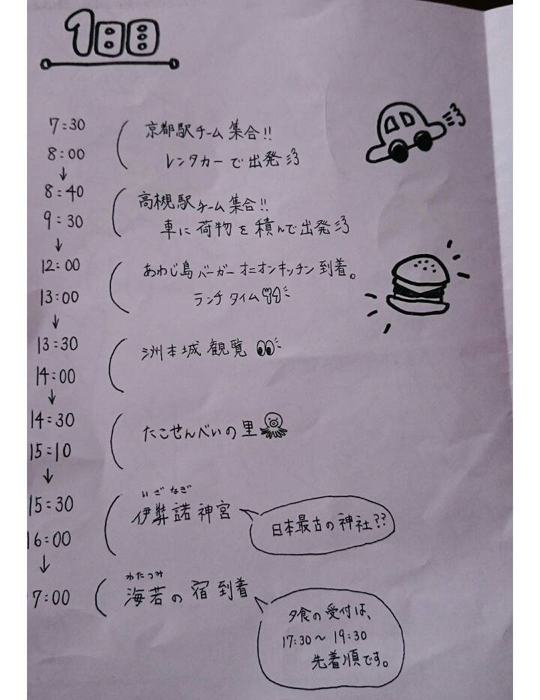 1日目
7:30
京都駅チーム集合!!
8:00
レンタカーで出発
8:40
高槻駅チーム集合!!
9:30
車に荷物を積んで出発
12:00
あわじ島バーガー オニオンキッチン到着。
13:00
ランチタイム
13:30
洲本城 観覧
14:00
14:30
たこせんべいの里
15:10
15:30
いざなぎ
伊弉諾神宮
日本最古の神社??
16:00
わたつみ
7:00
海若の宿 到着
夕食の受付は、
17:30〜19:30
先着順です。